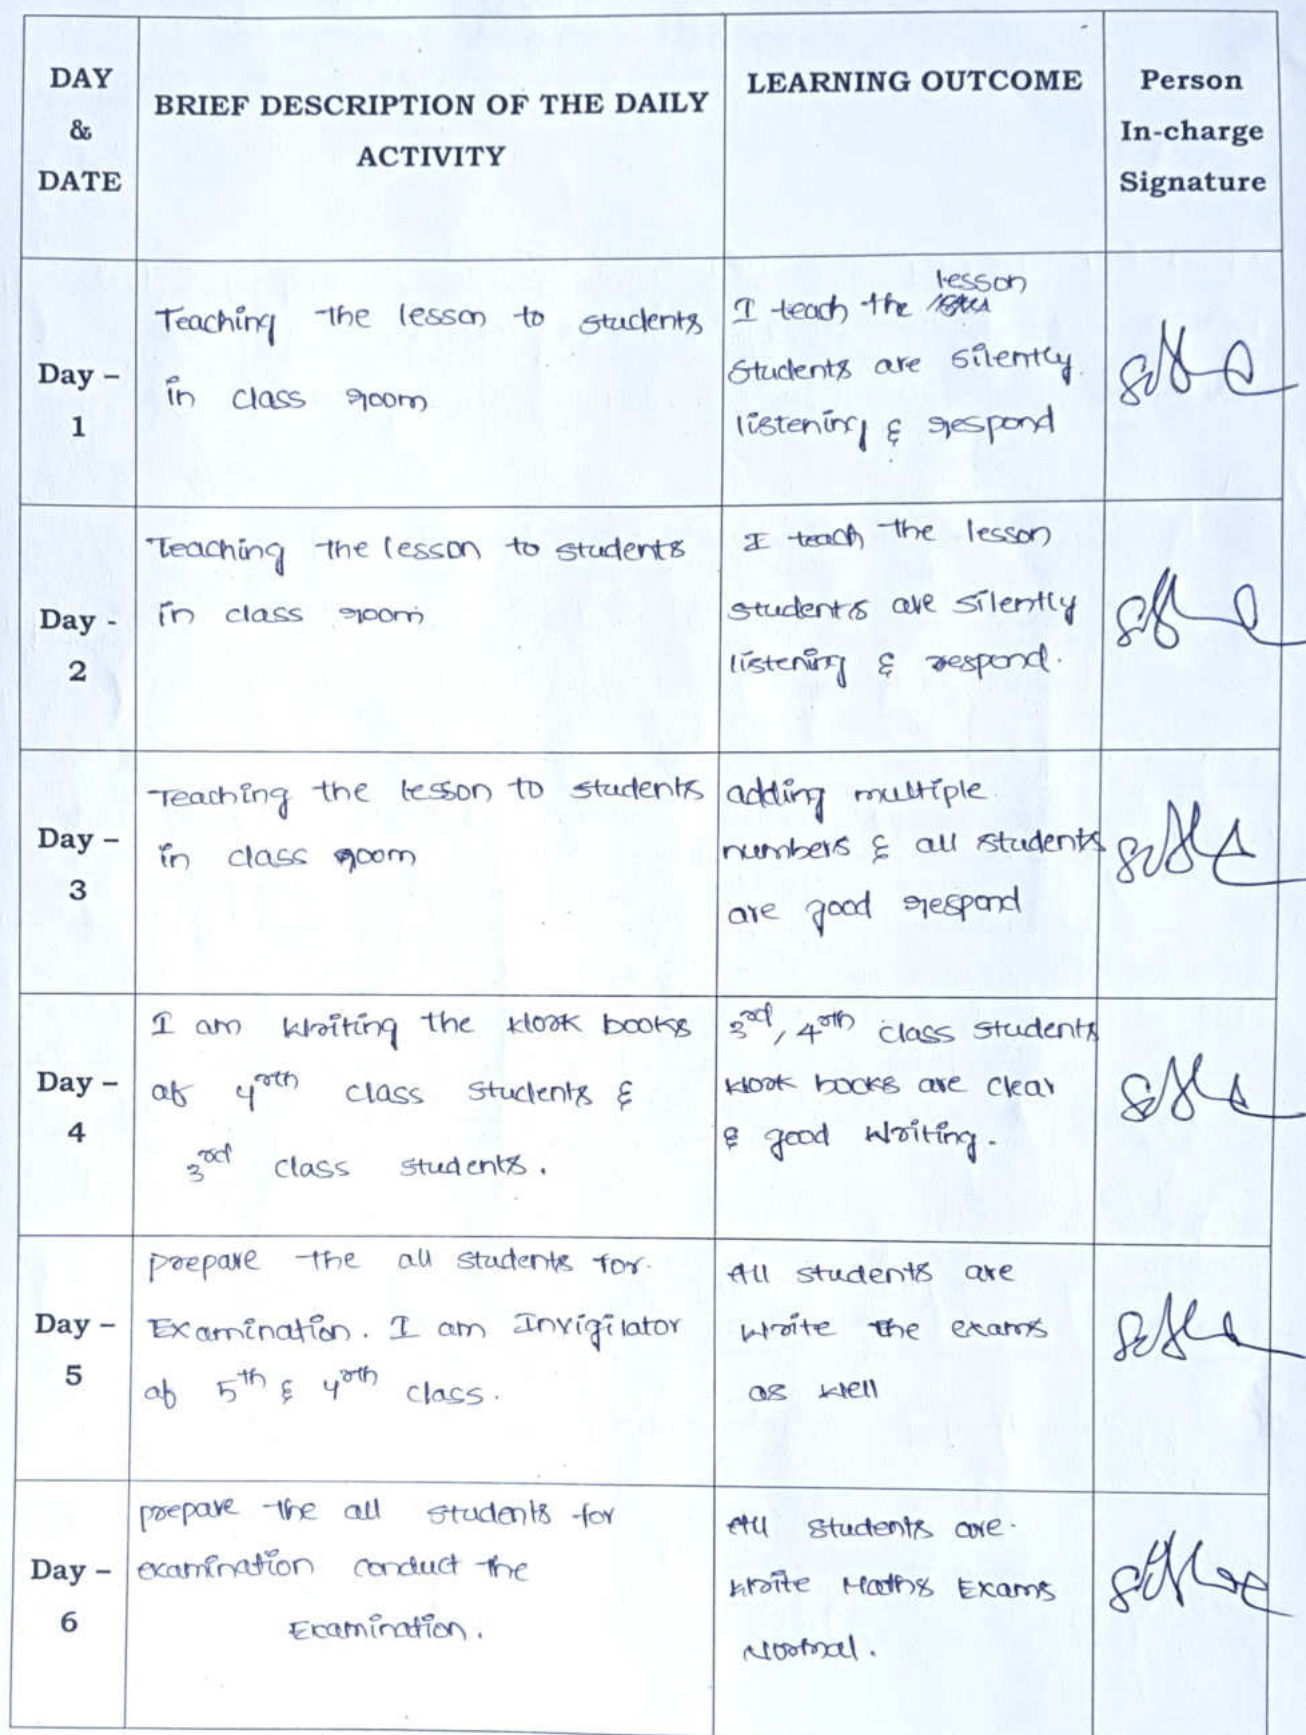 DAY
&
DATE
BRIEF DESCRIPTION OF THE DAILY
ACTIVITY
LEARNING OUTCOME
Person
In-charge
Signature
Day –
1
Teaching the lesson to students
in class room
lesson
I teach the
students are silently
listening & respond
Day -
2
Teaching the lesson to students
in class room
I teach the lesson
students are silently
listening & respond.
Day –
3
Teaching the lesson to students
in class room
adding multiple
numbers & all students
are good respond
Day –
4
I am writing the work books
of 4rth class students &
3rd class students.
3rd, 4rth class students
work books are clear
& good writing.
Day –
5
prepare the all students for
Examination. I am Invigilator
of 5th & 4rth class.
All students are
write the exams
as well
Day –
6
prepare the all students for
examination conduct the
Examination.
All students are
write Maths Exams
Normal.